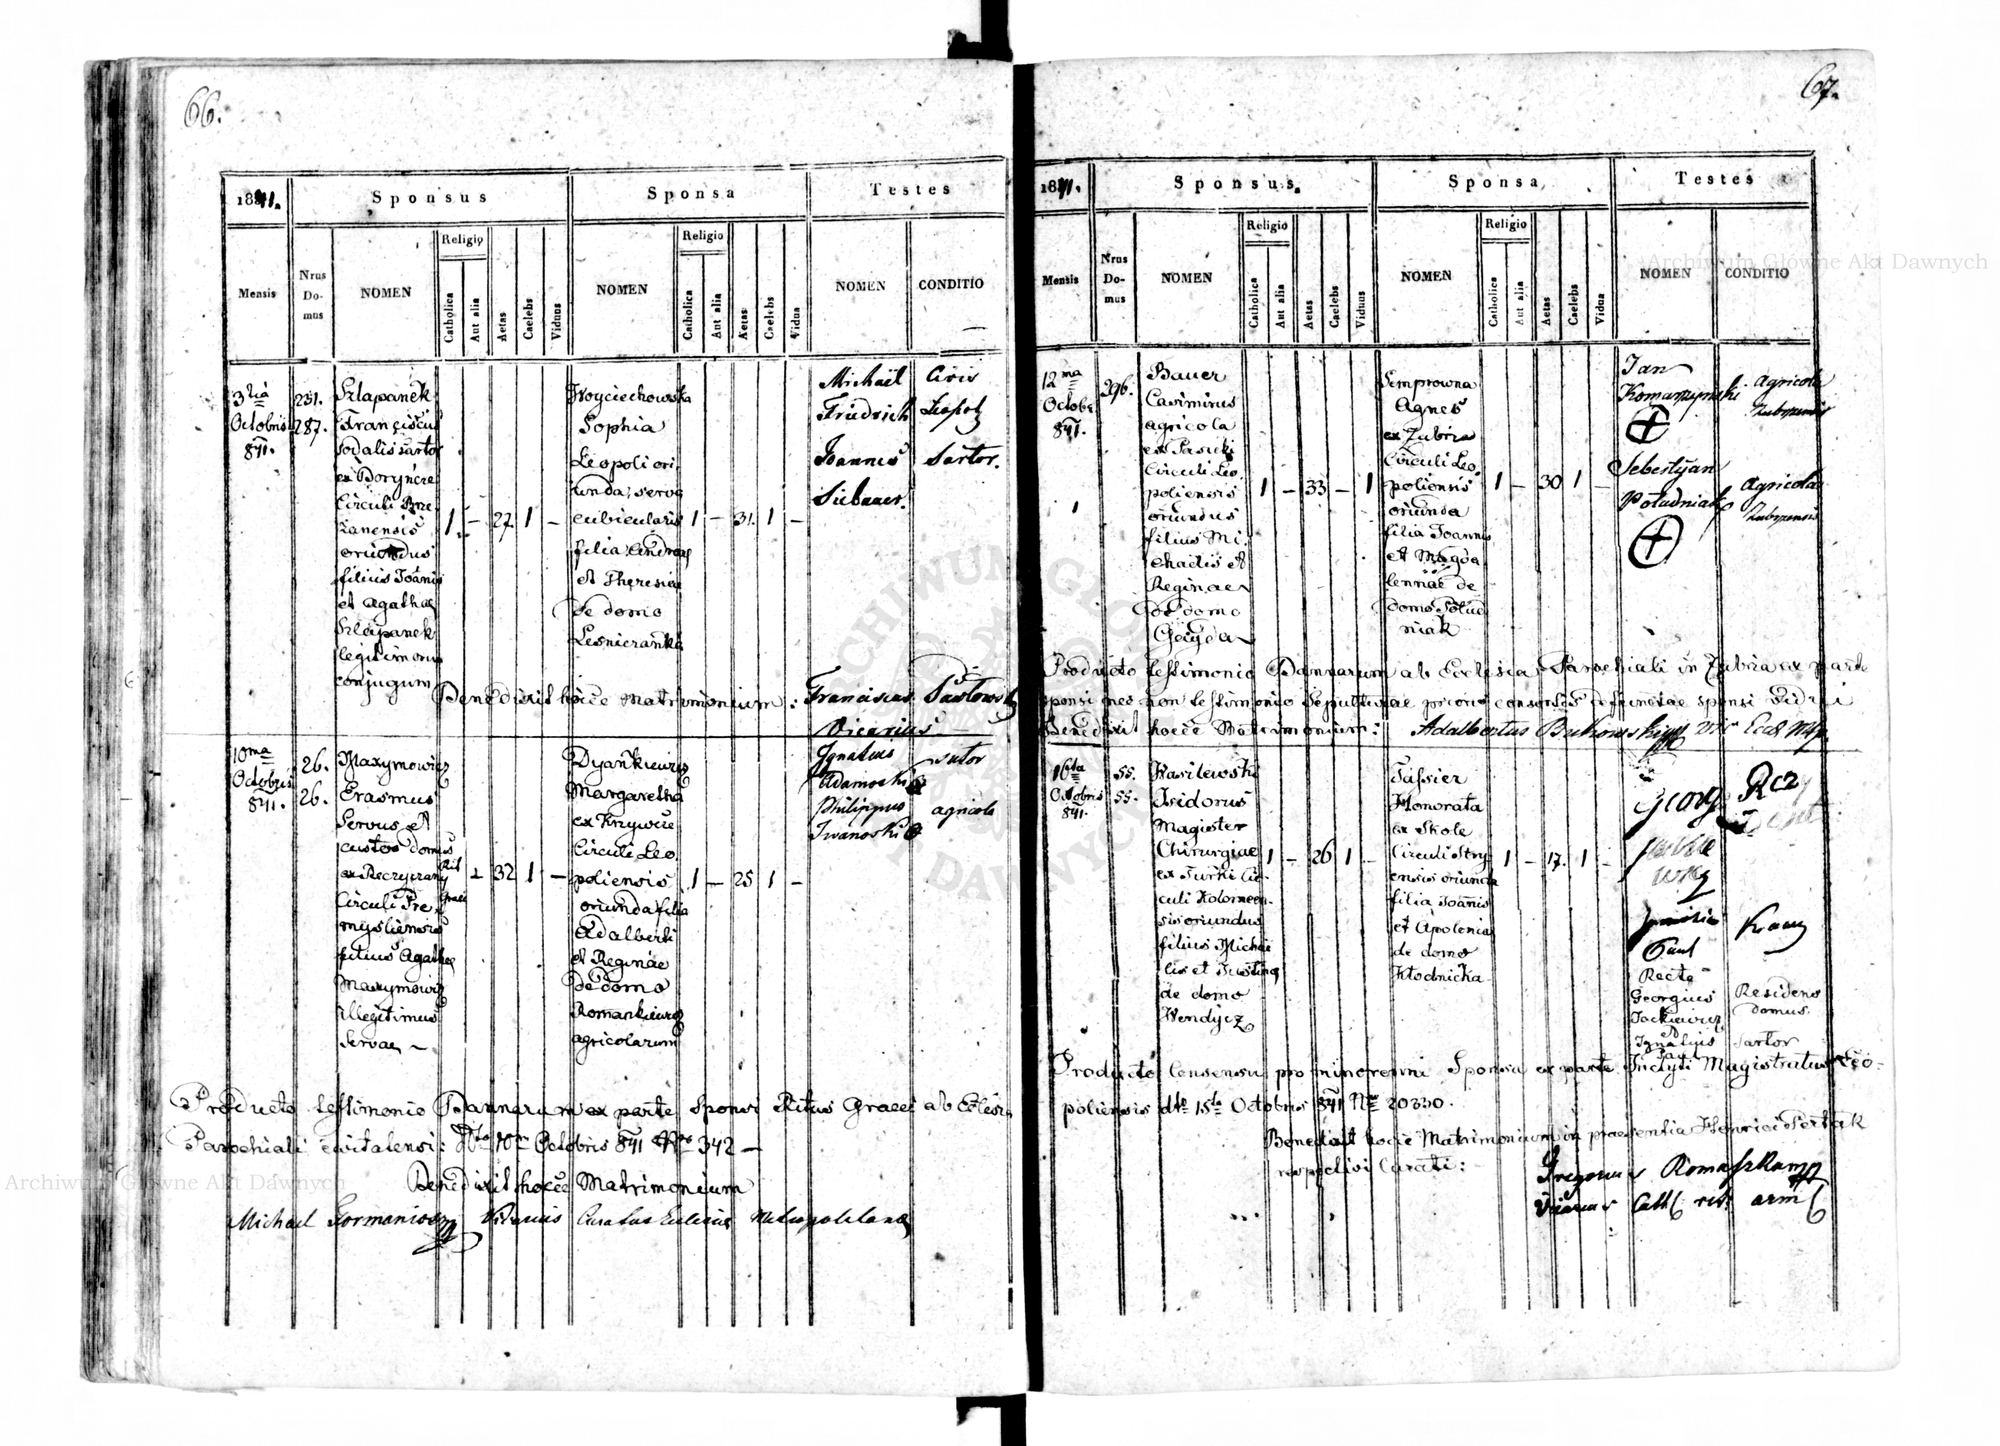 66.
1841.
Sponsus
Sponsa
Testes
Mensis
Nrus Domus
NOMEN
Religio
Catholica
Aut alia
Aetas
Caelebs
Viduus
NOMEN
Religio
Catholica
Aut alia
Aetas
Caelebs
Vidua
NOMEN
CONDITIO
3tia
Octobris
841.
251.
287.
Szlapanek
Franciscus
sodalis sartor
ex
Circuli Brze
zanensis
oriundus
filius Joanis
et Agathae
Szlapanek
legitimorum
conjugum
1 – 27 1 –
Woyciechowska
Sophia
Leopoli ori
unda, serva
cubicularis
filia Andreae
et Theresiae
de domo
Lesnicranka
1 – 31. 1 –
Michaël
Friedrich
Joannes
Siebauer.
Civis
Leopol
Sartor.
Benedixit hocce Matrimonium: Franciscus
Vicarius
10ma
Octobris
841.
26.
26.
Maxymowicz
Erasmus
Servus et
custos domus
Circuli Pre
mysliensis
filius Agathae
Maxymowicz
illegitimus
Servae –
Rit
Graeci
1 32 1 –
Dyańkiewicz
Margaretha
ex Krzywcie
Circuli Leo
poliensis
oriunda filia
Adalberti
et Reginae
de domo
Romankiewicz
agricolarum
1 – 25 1 –
Ignatius
Adamoski
Philippus
Iwanoski
sutor
agricola
Producto testimonio Bannorum ex parte Sponsi Ritus Graeci ab Ecclesia
Parochiali 10ma Octobris 841 Nro 342 –
Benedixit hocce Matrimonium
Michael Vicarius Curatus Ecclesiae Metropolitanae
67.
1841.
Sponsus.
Sponsa
Testes
Mensis
Nrus Domus
NOMEN
Religio
Catholica
Aut alia
Aetas
Caelebs
Viduus
NOMEN
Religio
Catholica
Aut alia
Aetas
Caelebs
Vidua
NOMEN
CONDITIO
12ma
Octobr
841.
296.
Bauer
Casimirus
agricola
ex Pasieki
Circuli Leo
poliensis
oriundus
filius Mi
chaelis et
Reginae
de domo
Gayda
1 – 33 – 1
Semprowna
Agnes
ex Zubrza
Circuli Leo
poliensis
oriunda
filia Joannis
et Magda
lennae de
domo Polud
niak
1 – 30 1 –
Jan
Komarzynski
Sebestyan
Południak
agricola
Zubrzensis
Agricola
Zubrzensis
Producto testimonio Bannorum ab Ecclesia Parochiali in Zubrza ex parte
sponsi nec non testimonio Sepulturae prioris consortis defunctae sponsi Vidui
Benedixit hocce Matrimonium: Adalbertus
16ta
Octobris
841.
55.
55.
Wasilewski
Isidorus
Magister
Chirurgiae
ex Turki Cir
culi Kolomeen
sis oriundus
filius Michae
lis et Justinae
de domo
Wendycz
1 – 26 1 –
Tassier
Honorata
ex Skole
Circuli Stry
ensis oriunda
filia Joanis
et Apolenia
de domo
Kłodnicka
1 – 17. 1 –
Georg
Paul
Recte
Georgius
Jackiewicz
et
Ignatius
Paul
Residens
domus
Sartor
Producto Consensu pro minorenni Sponsa ex parte Inclyti Magistratus Leo-
poliensis dto 15ta Octobris 841 Nro 20330.
Benedixit hocce Matrimonium in praesentia Henrici
respectivi Curati:
Gregorius Romaszkan
Vicarius Cath rit arm
Archiwum Główne Akt Dawnych
Archiwum Główne Akt Dawnych